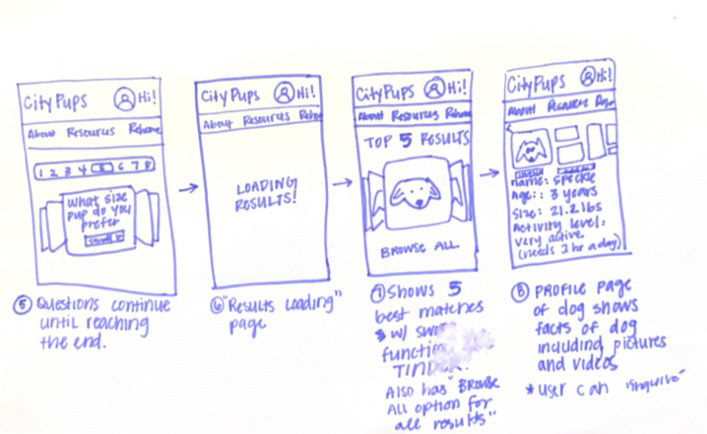 CityPups Hi!
About Resources Rehome
1 2 3 4 6 7 8
What size
pup do you
prefer
⑤ Questions continue
until reaching
the end.
CityPups Hi!
About Resources Reho
LOADING
RESULTS!
⑥ "Results Loading"
page
CityPups Hi!
About Resources Rehome
TOP 5 RESULTS
BROWSE ALL
⑦ Shows 5
best matches
w/
TIND
Also has "Browse
All option for
all results"
CityPups Hi!
About Resources
Name: Speckle
Age: 3 years
Size: 21.2 lbs
Activity level:
very active
(needs 1 hr a day)
⑧ PROFILE page
of dog shows
facts of dog
including pictures
and videos
* user can "inquire"